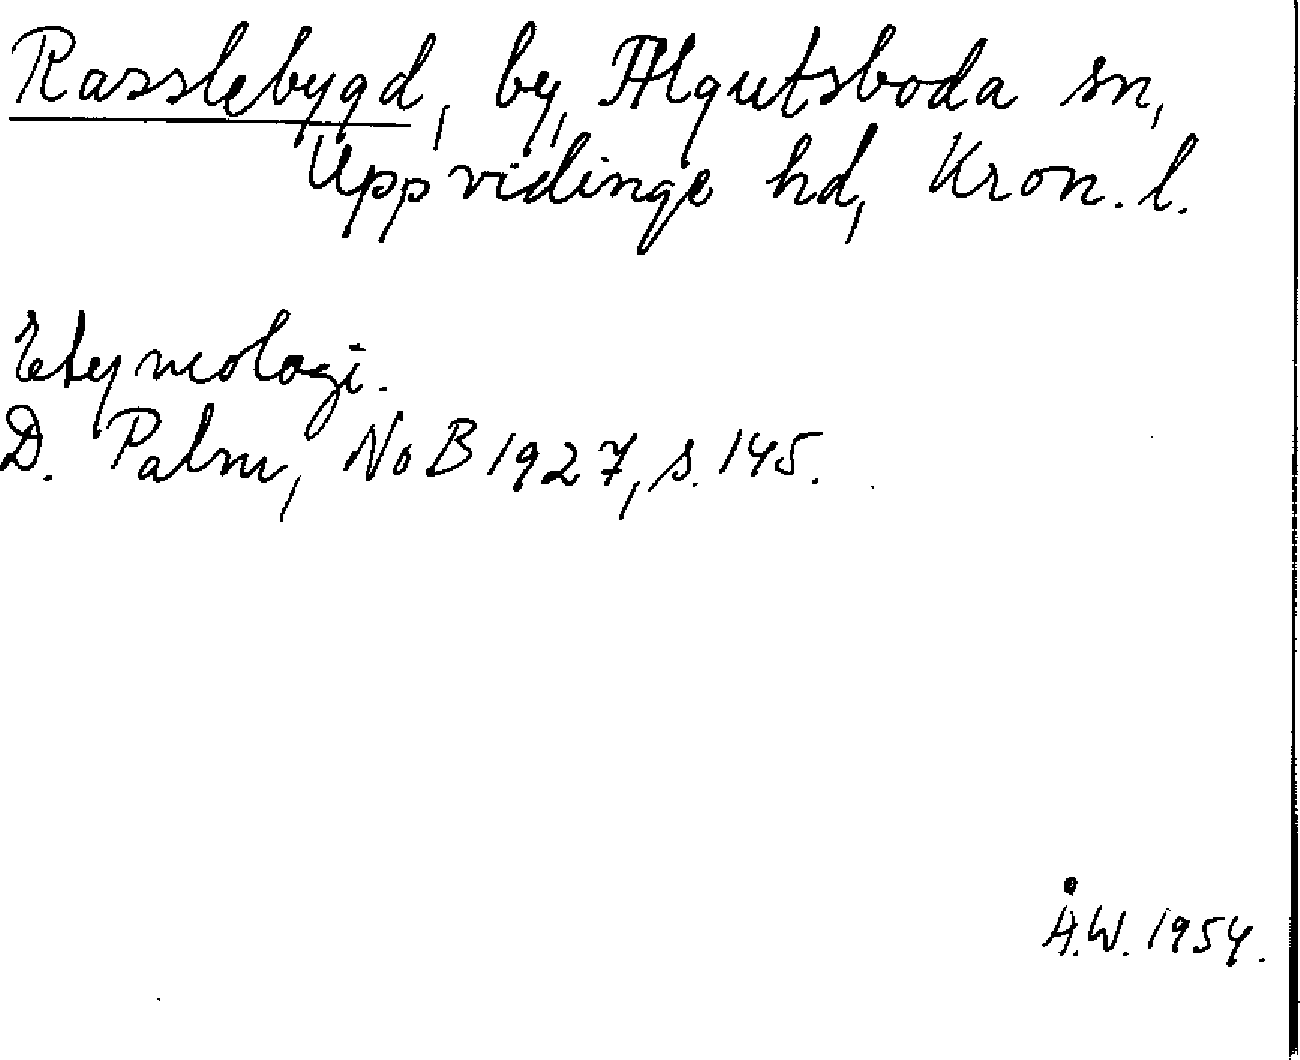 Rasslebygd, by, Algutsboda sn,
Uppvidinge hd, Kron. l.
Etymologi.
D. Palm, NoB 1927, s. 145.
Å.W. 1954.